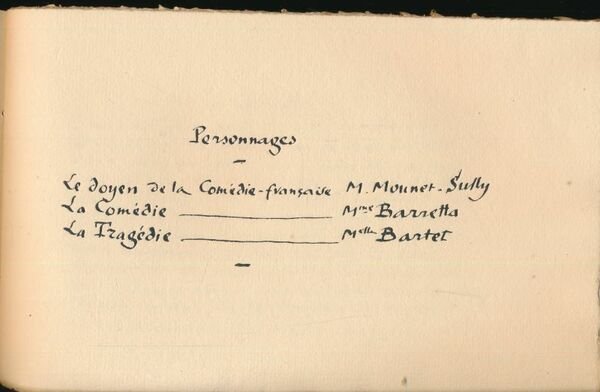 Personnages
Le doyen de la Comédie-française M. Mounet-Sully
La Comédie M^me Barretta
La Tragédie M^elle Bartet